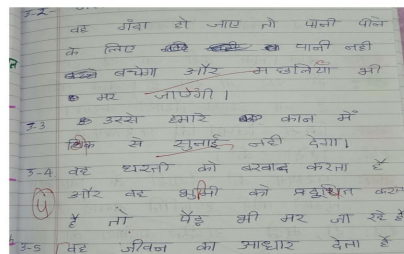 उ-2-
वह गंदा हो जाए तो पानी पीने
के लिए पानी नही
बचेगा और मछलियाँ भी
मर जाएंगी।
उ-3 उससे हमारे कान में
ठीक से सुनाई नही देगा।
उ-4 वह धरती को बरबाद करता है
और वह भुमी को प्रदुषित करता
है तो पेड़ भी मर जा रहे है
उ-5 वह जीवन का आधार देता है